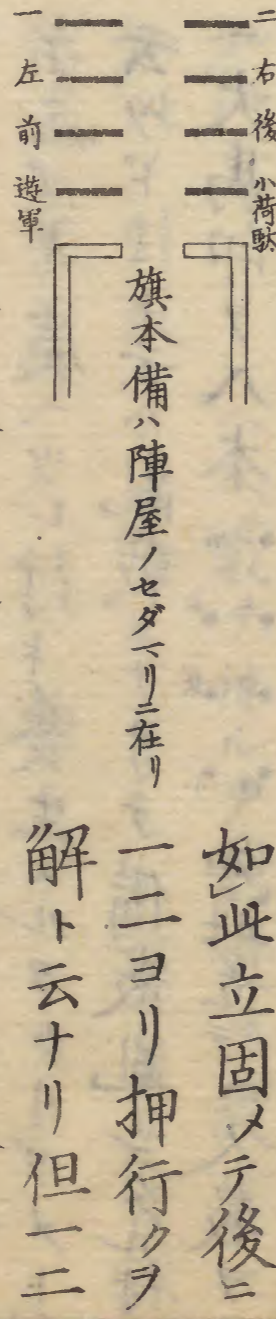 二 一
右 左
後 前
小荷駄 遊軍
旗本備ハ陣屋ノセダマリニ在リ
如此立固メテ後ニ
一二ヨリ押行クヲ
解ト云ナリ但一二